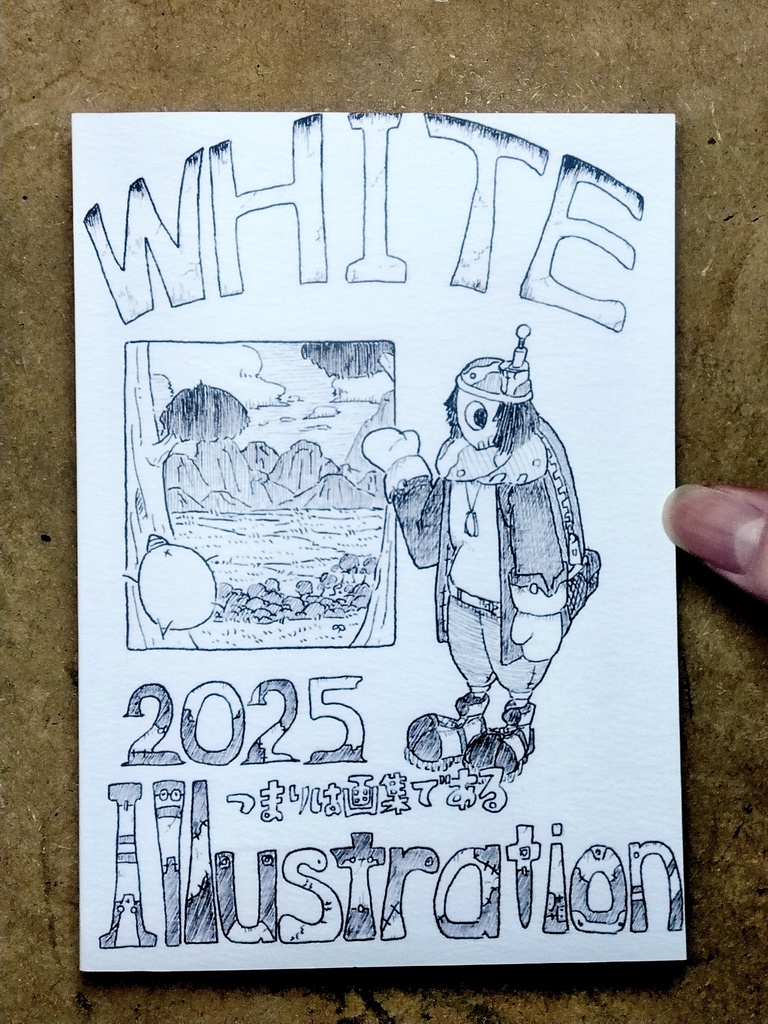 WHITE
2025
つまりは画集である
Illustration